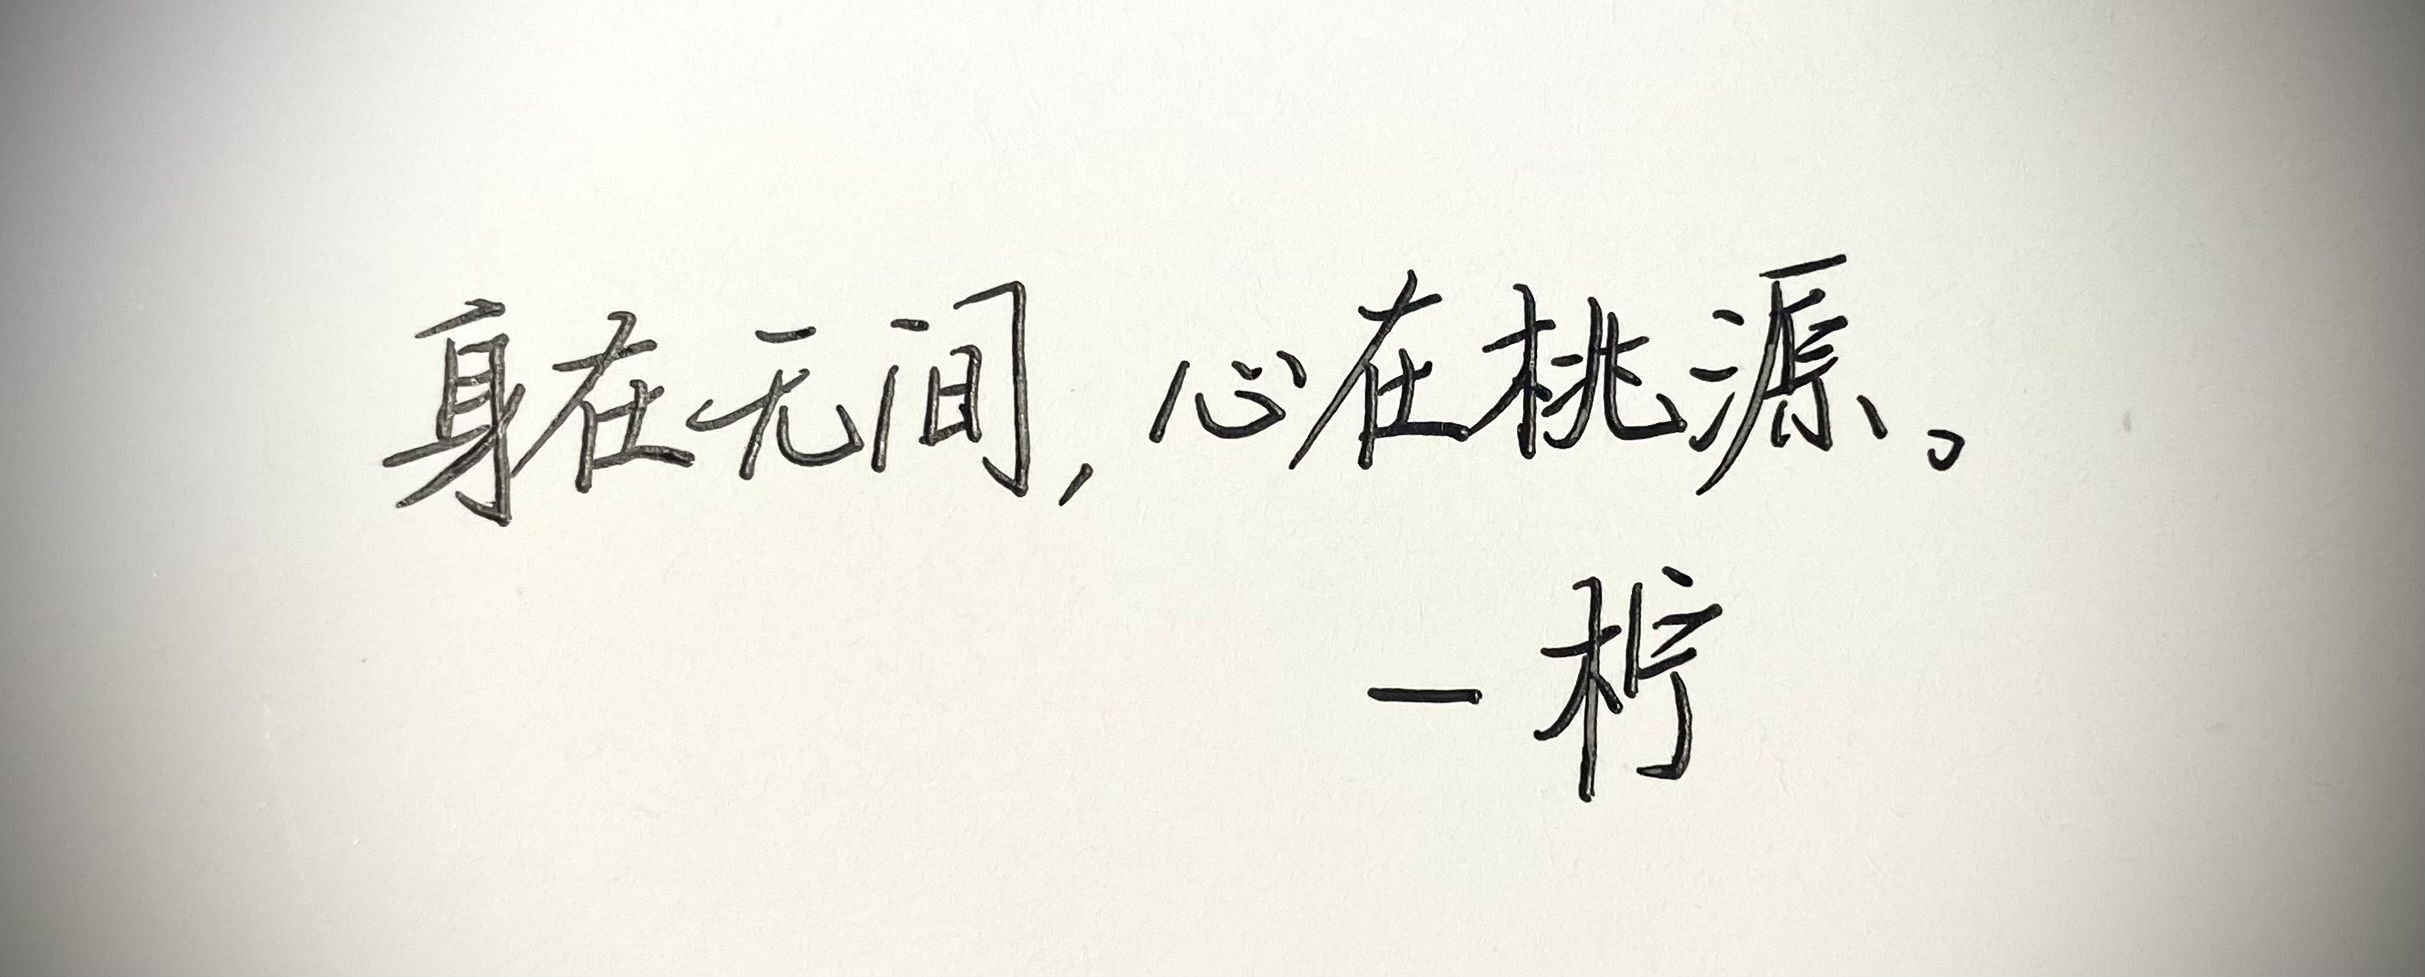 身在无间，心在桃源。
一柠